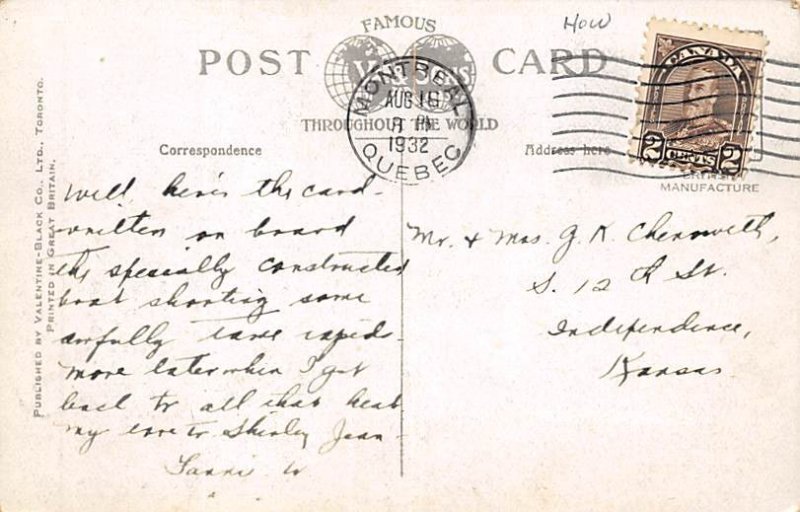 HOW
FAMOUS
POST CARD
THROUGHOUT THE WORLD
MONTREAL
AUG 18
PM
1932
QUEBEC
CANADA
2 CENTS 2
Correspondence
Address here
MANUFACTURE
PUBLISHED BY VALENTINE-BLACK CO., LTD., TORONTO.
PRINTED IN GREAT BRITAIN.
Well, here's the card
written on board
the specially constructed
boat shooting some
awfully tame rapids.
more later when I get
back to all that heat
my love to Shirley Jean
Fannie W
Mr. & Mrs. G. K. Chenowith,
S. 12th St.
Independence,
Kansas